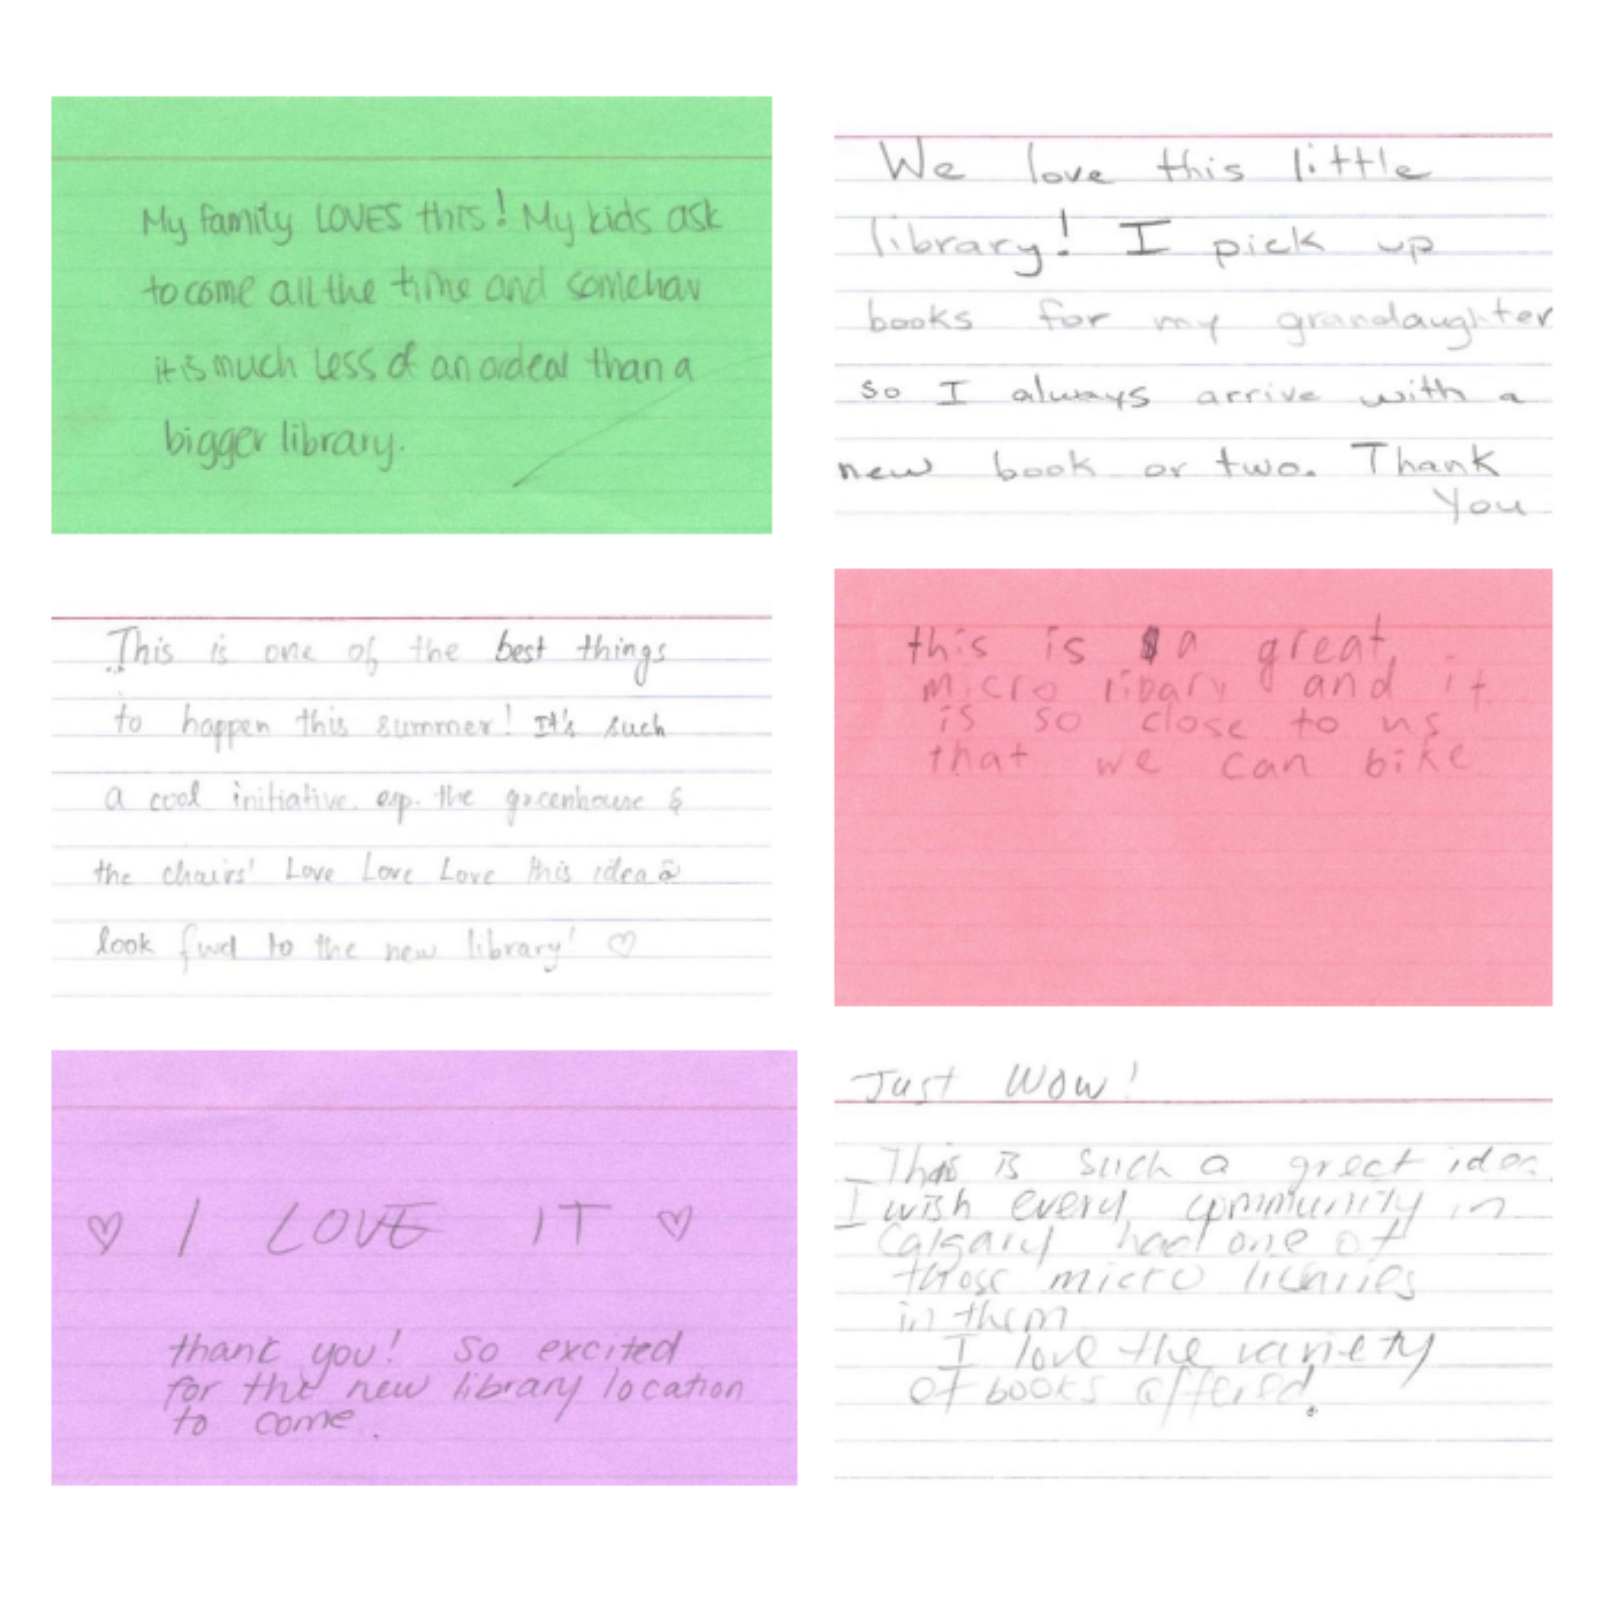 My family LOVES this! My kids ask
to come all the time and somehow
it is much less of an ordeal than a
bigger library.
We love this little
library! I pick up
books for my grandaughter
so I always arrive with a
new book or two. Thank
You
This is one of the best things
to happen this summer! It's such
a cool initiative. esp. the greenhouse &
the chairs! Love Love Love this idea &
look fwd to the new library! ♡
this is a great
micro libary and it
is so close to us
that we can bike
♡ I LOVE IT ♡
thank you! So excited
for the new library location
to come.
Just Wow!
This is such a great idea
I wish every community in
Calgary had one of
those micro libraries
in them
I love the variety
of books offered.